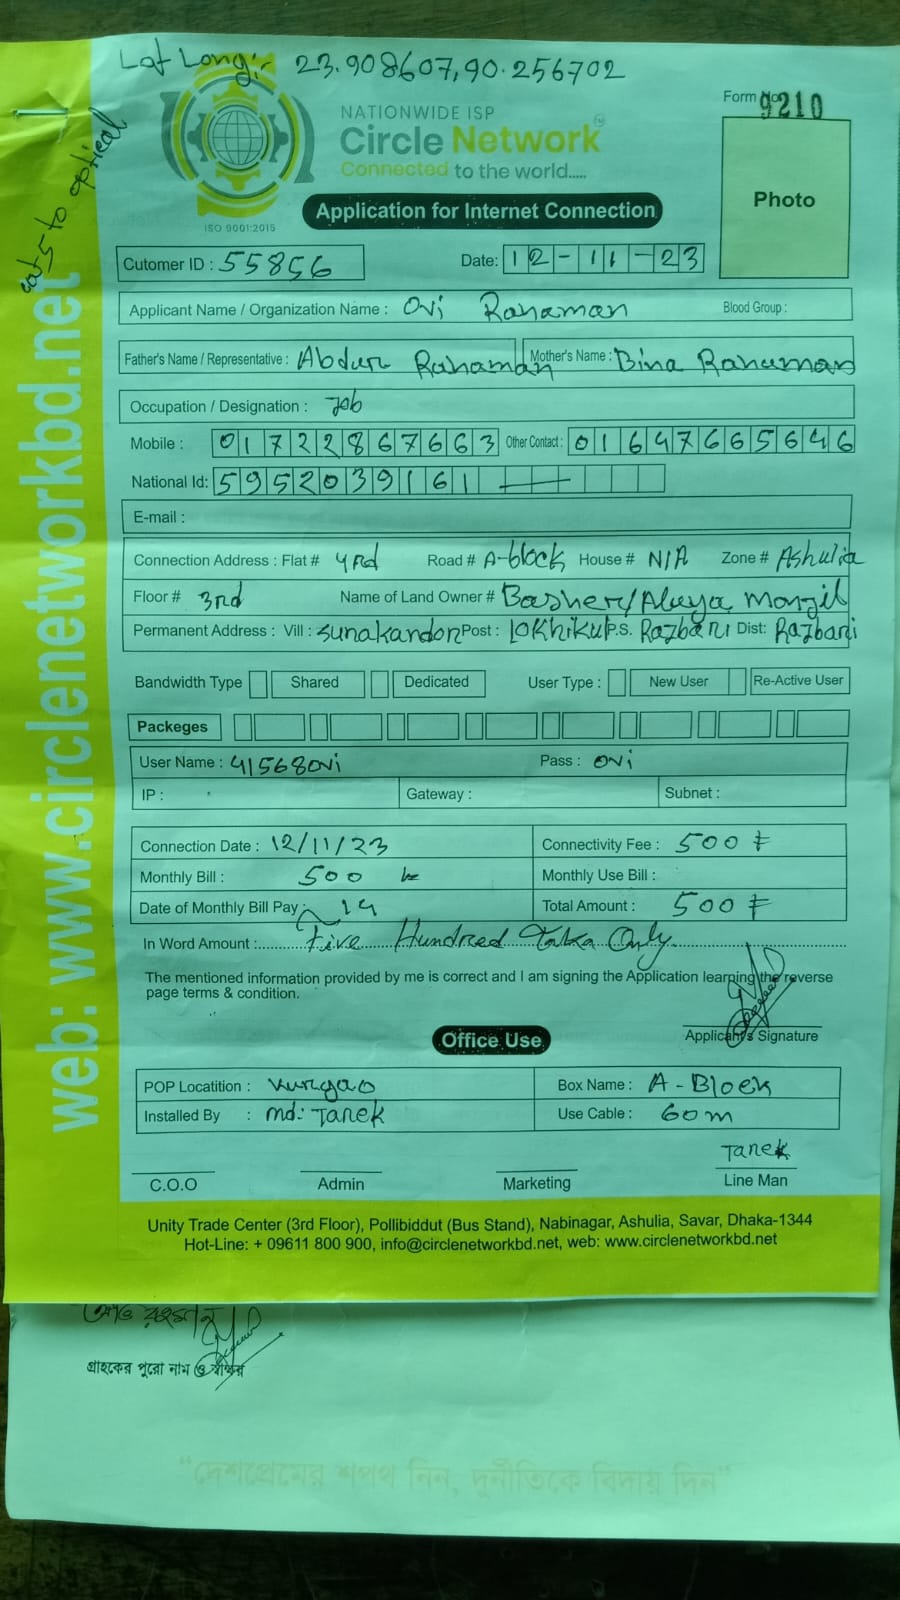 Lat Long:- 23.908607,90.256702
cat5 to optical
Form No 9210
NATIONWIDE ISP
Circle Network
Connected to the world.....
ISO 9001:2015
Photo
Application for Internet Connection
Cutomer ID : 55856
Date: 12-11-23
Applicant Name / Organization Name : Ovi Rahaman Blood Group :
Father's Name / Representative : Abdur Rahaman Mother's Name : Bina Rahaman
Occupation / Designation : Job
Mobile : 01722867663 Other Contact : 01647665646
National Id: 5952039161
E-mail :
Connection Address : Flat # 4Rd Road # A-block House # N/A Zone # Ashulia
Floor # 3rd Name of Land Owner # Basher/Aleya Monzil
Permanent Address : Vill : Sunakandor Post : LOKhikul P.S. Razbari Dist: Razbari
Bandwidth Type Shared Dedicated User Type : New User Re-Active User
Packeges
User Name : 41568ovi Pass : ovi
IP : Gateway : Subnet :
Connection Date : 12/11/23 Connectivity Fee : 500 ₮
Monthly Bill : 500 Monthly Use Bill :
Date of Monthly Bill Pay : 14 Total Amount : 500 ₮
In Word Amount : Five Hundred Taka Only.
The mentioned information provided by me is correct and I am signing the Application learning the reverse
page terms & condition.
Applicant's Signature
Office Use
POP Locatition : Kurgao Box Name : A - Block
Installed By : md: Tarek Use Cable : 60m
Tarek
C.O.O Admin Marketing Line Man
Unity Trade Center (3rd Floor), Pollibiddut (Bus Stand), Nabinagar, Ashulia, Savar, Dhaka-1344
Hot-Line: + 09611 800 900, info@circlenetworkbd.net, web: www.circlenetworkbd.net
web: www.circlenetworkbd.net
অভি রহমান
গ্রাহকের পুরো নাম ও স্বাক্ষর
"দেশপ্রেমের শপথ নিন, দুর্নীতিকে বিদায় দিন"